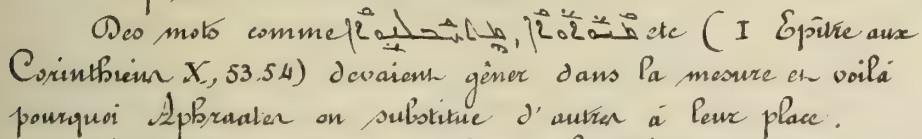 Des mots comme , etc ( I Epître aux
Corinthiens X, 53.54) devaient gêner dans la mesure et voilà
pourquoi Aphraates en substitue d'autres à leur place.